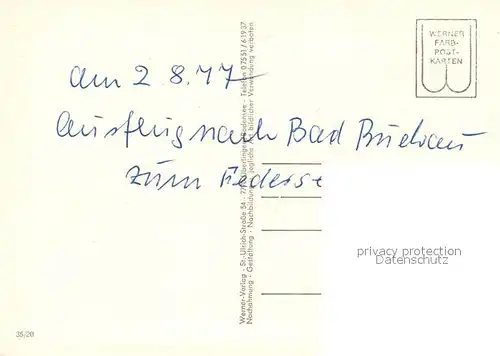 WERNER
FARB-
POST-
KARTEN
am 2 8.77
Ausflug nach Bad Buchau
zum Federse
Werner-Verlag · St.-Ulrich-Straße 54 · Überlingen/Bodensee · Telefon 07551/61937
Nachahmung - Gestaltung - Nachbildung jeglicher bildlicher Verwendung verboten
privacy protection
Datenschutz
35/20